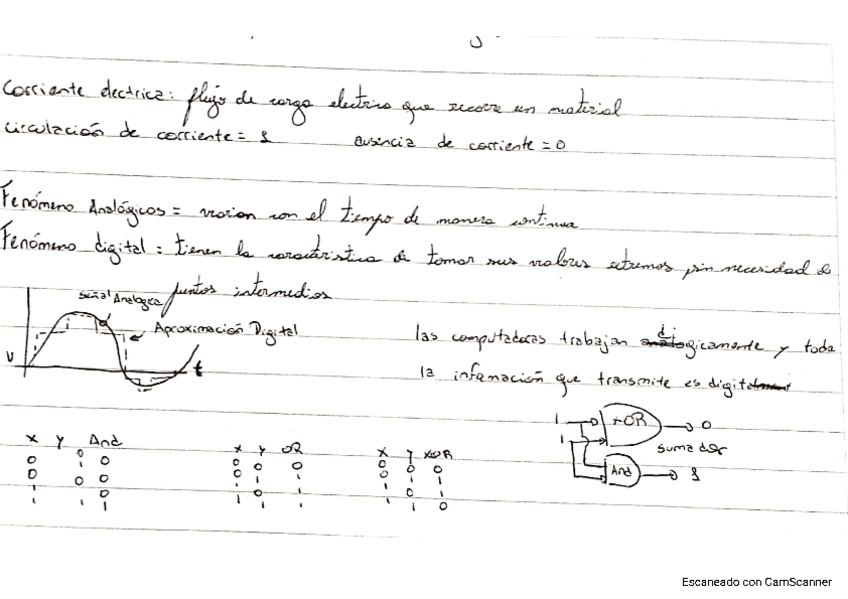 Corriente electrica: flujo de carga electrica que recorre un material
circulación de corriente = 1 ausencia de corriente = 0
Fenómeno Analógicos = varian con el tiempo de manera continua
Fenómeno digital = tienen la caracteristica de tomar sus valores extremos sin necesidad de
puntos intermedios
Señal Analogica
Aproximación Digital
V
t
las computadoras trabajan digicamente y toda
la infamación que transmite es digital
X Y And
0 0 0
0 1 0
1 0 0
1 1 1
X Y OR
0 0 0
0 1 1
1 0 1
1 1 1
X Y XOR
0 0 0
0 1 1
1 0 1
1 1 0
1
1
XOR
0
sumador
And
1
Escaneado con CamScanner